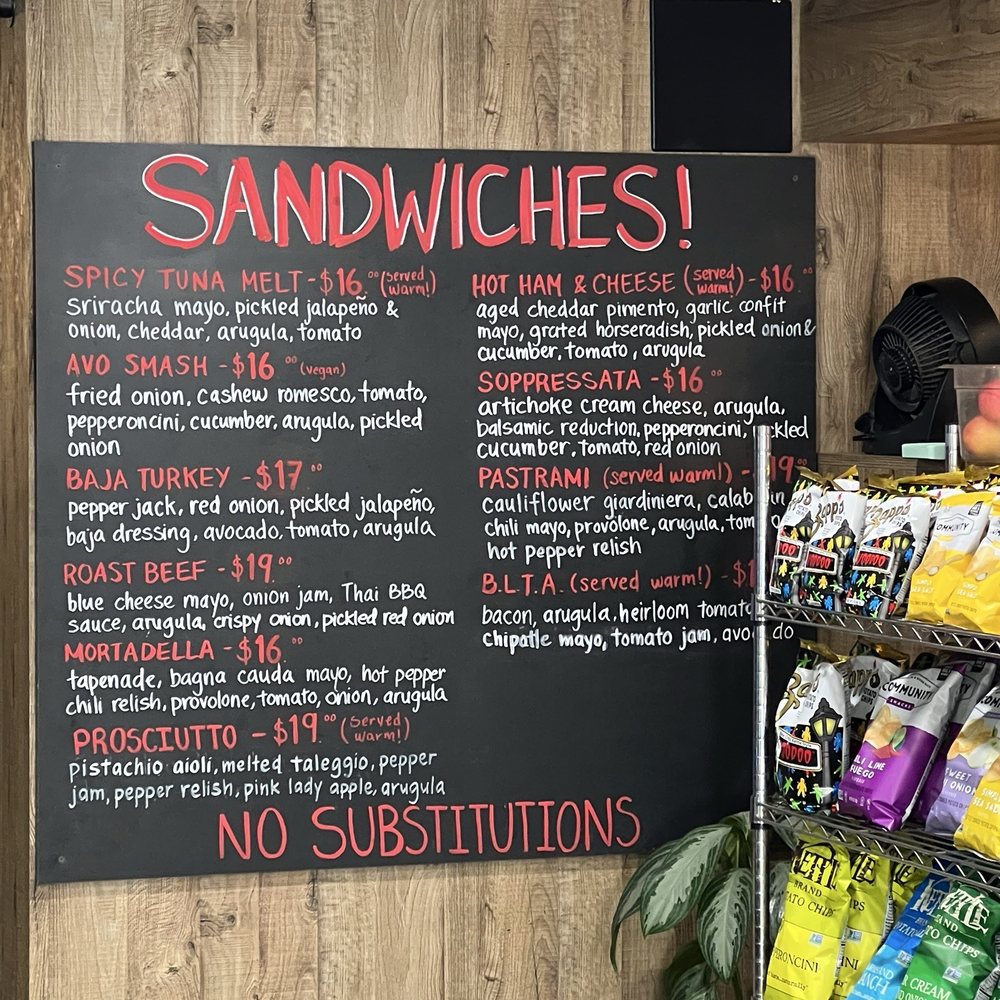 SANDWICHES!
SPICY TUNA MELT - $16.00 (served warm!)
sriracha mayo, pickled jalapeño &
onion, cheddar, arugula, tomato
AVO SMASH - $16 00 (vegan)
fried onion, cashew romesco, tomato,
pepperoncini, cucumber, arugula, pickled
onion
BAJA TURKEY - $17.00
pepper jack, red onion, pickled jalapeño,
baja dressing, avocado, tomato, arugula
ROAST BEEF - $19.00
blue cheese mayo, onion jam, Thai BBQ
sauce, arugula, crispy onion, pickled red onion
MORTADELLA - $16.00
tapenade, bagna cauda mayo, hot pepper
chili relish, provolone, tomato, onion, arugula
PROSCIUTTO - $19.00 (served warm!)
pistachio aioli, melted taleggio, pepper
jam, pepper relish, pink lady apple, arugula
HOT HAM & CHEESE (served warm!) - $16.00
aged cheddar pimento, garlic confit
mayo, grated horseradish, pickled onion &
cucumber, tomato, arugula
SOPPRESSATA - $16.00
artichoke cream cheese, arugula,
balsamic reduction, pepperoncini, ckled
cucumber, tomato, red onion
PASTRAMI (served warm!) - 19.00
cauliflower giardiniera, calab in
chili mayo, provolone, arugula, tom o
hot pepper relish
B.L.T.A. (served warm!) - $1
bacon, arugula, heirloom tomato
chipotle mayo, tomato jam, avo do
NO SUBSTITUTIONS
Zapp's
VOODOO
COMMUNITY
SIMPLY
SEA SALT
VOODOO
COMMUNITY
SNACKS
LIME
FUEGO
SWEET
ONION
SEA SALT
KETTLE
BRAND
POTATO CHIPS
PEPERONCINI
KETTLE
BRAND
POTATO CHIPS
RANCH
CREAM
ONION